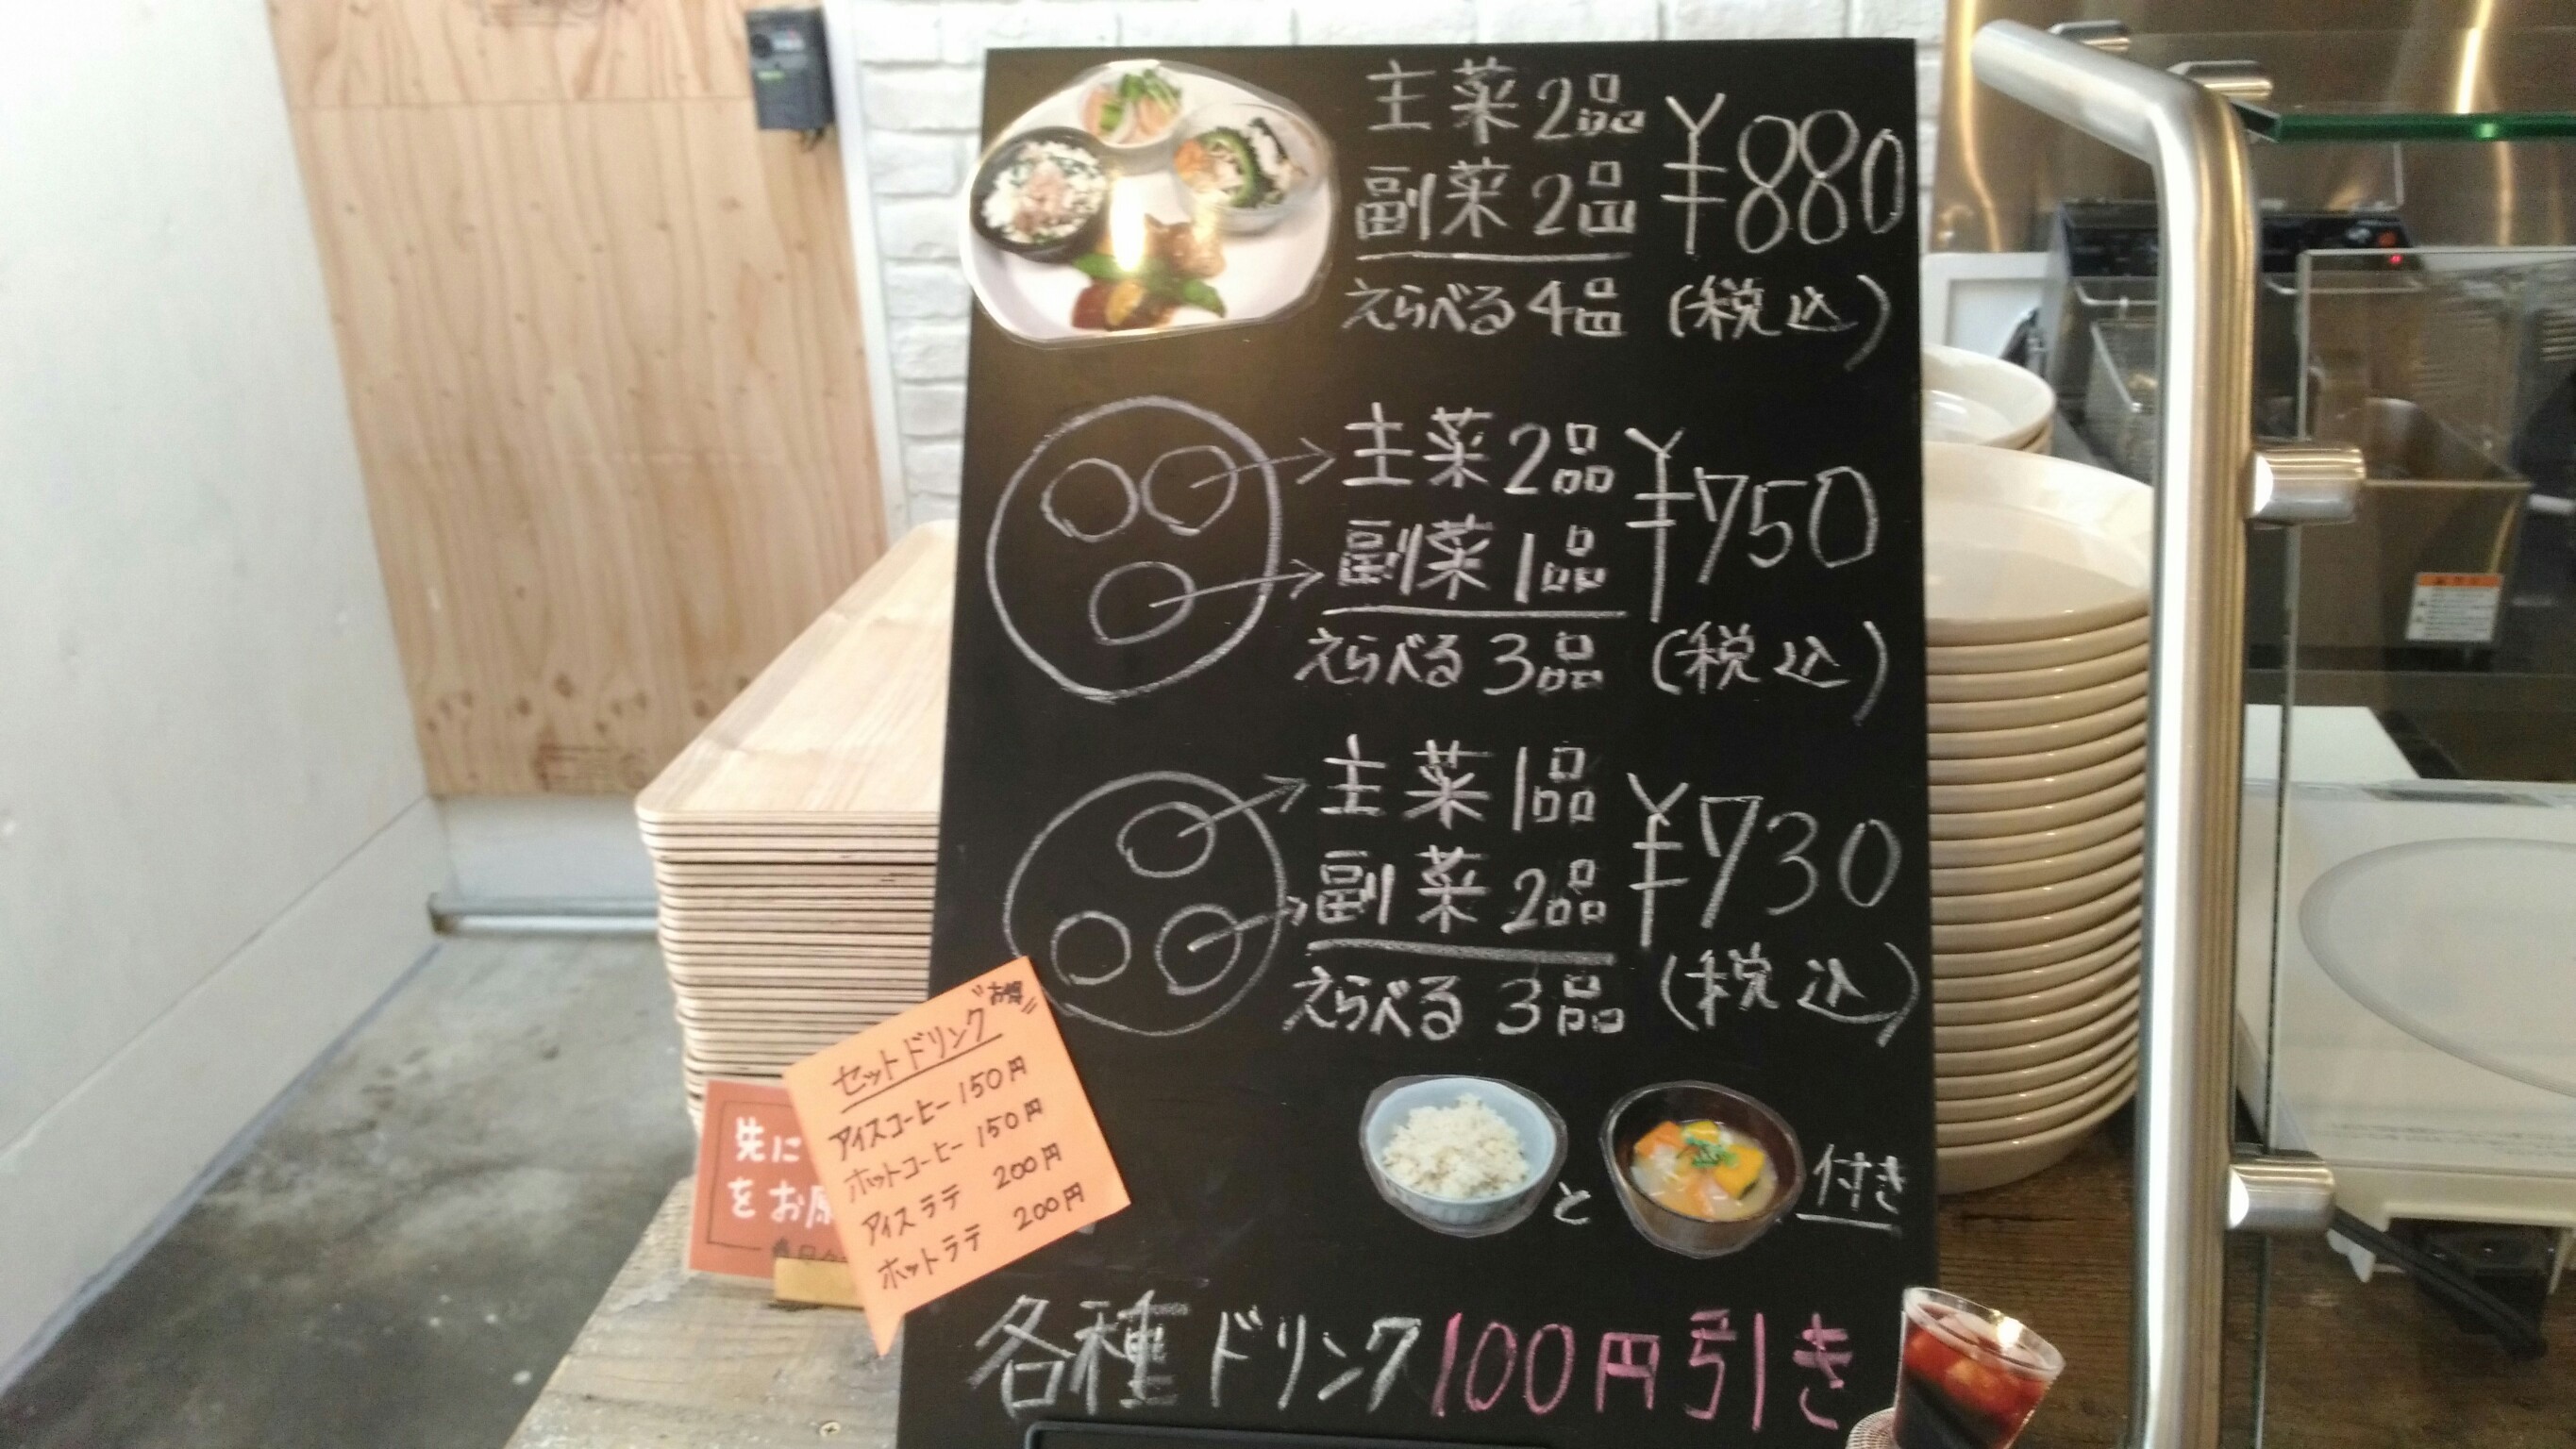 主菜2品
副菜2品
¥880
えらべる4品
(税込)
主菜2品
副菜1品
¥750
えらべる3品
(税込)
主菜1品
副菜2品
¥730
えらべる3品
(税込)
と
付き
各種ドリンク100円引き
"お得"
セットドリンク
アイスコーヒー 150円
ホットコーヒー 150円
アイスラテ 200円
ホットラテ 200円
先に
をお